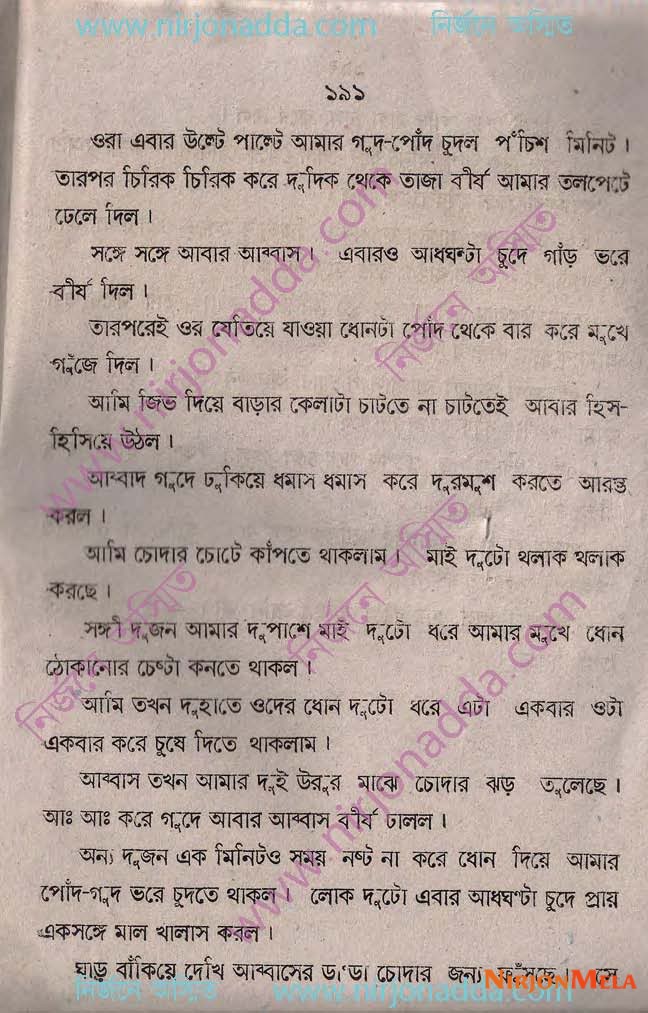 www.nirjonadda.com নির্জনে অস্মিত
১৯১
ওরা এবার উল্টে পাল্টে আমার গুদ-পোঁদ চুদল পঁচিশ মিনিট।
তারপর চিরিক চিরিক করে দুদিক থেকে তাজা বীর্য আমার তলপেটে
ঢেলে দিল।
সঙ্গে সঙ্গে আবার আব্বাস। এবারও আধঘন্টা চুদে গাঁড় ভরে
বীর্য দিল।
তারপরেই ওর যেতিয়ে যাওয়া ধোনটা পোঁদ থেকে বার করে মুখে
গুঁজে দিল।
আমি জিভ দিয়ে বাড়ার কেলাটা চাটতে না চাটতেই আবার হিস-
হিসিয়ে উঠল।
আব্বাদ গুদে ঢুকিয়ে ধমাস ধমাস করে দুরমুশ করতে আরম্ভ
করল।
আমি চোদার চোটে কাঁপতে থাকলাম। মাই দুটো থলাক থলাক
করছে।
সঙ্গী দুজন আমার দুপাশে মাই দুটো ধরে আমার মুখে ধোন
ঠোকানোর চেষ্টা কনতে থাকল।
আমি তখন দুহাতে ওদের ধোন দুটো ধরে এটা একবার ওটা
একবার করে চুষে দিতে থাকলাম।
আব্বাস তখন আমার দুই উরুর মাঝে চোদার ঝড় তুলেছে।
আঃ আঃ করে গুদে আবার আব্বাস বীর্য ঢালল।
অন্য দুজন এক মিনিটও সময় নষ্ট না করে ধোন দিয়ে আমার
পোঁদ-গুদ ভরে চুদতে থাকল। লোক দুটো এবার আধঘণ্টা চুদে প্রায়
একসঙ্গে মাল খালাস করল।
ঘাড় বাঁকিয়ে দেখি আব্বাসের ডাণ্ডা চোদার জন্য ফুঁসছে। সে
নির্জনে অস্মিত www.nirjonadda.com NIRJONMELA
www.nirjonadda.com নির্জনে অস্মিত
নির্জনে অস্মিত www.nirjonadda.com
নির্জনে অস্মিত